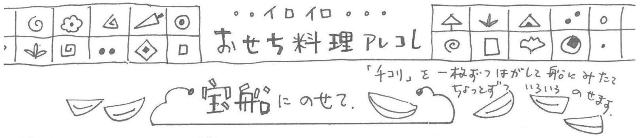 ・・イロイロ・・・
おせち料理アレコレ
「チコリ」を一枚ずつはがして船にみたて
ちょっとずついろいろのせます。
宝船にのせて.